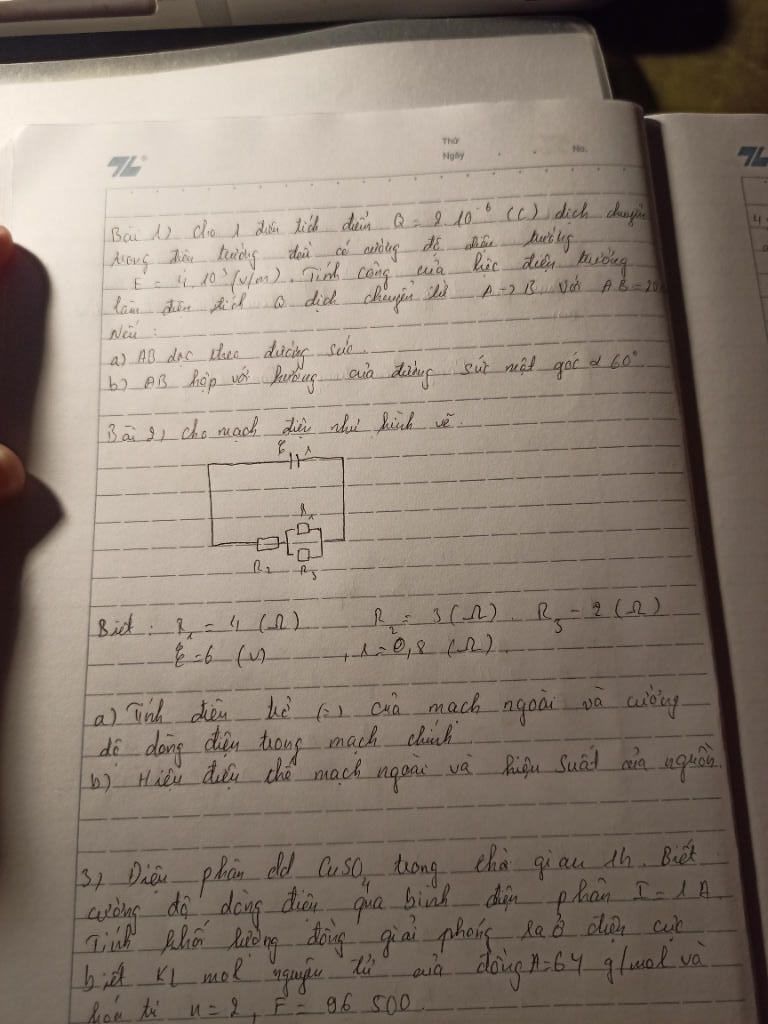 TL
Thứ
Ngày
No.
TL
Bài 1) Cho 1 điện tích điểm Q = 2.10⁻⁶ (C) dịch chuyển
trong điện trường đều có cường độ điện trường
E = 4.10³ (V/m). Tính công của lực điện trường
làm điện tích Q dịch chuyển từ A→B với AB = 20
Nếu :
a) AB dọc theo đường sức.
b) AB hợp với hướng của đường sức một góc α 60°
Bài 2) Cho mạch điện như hình vẽ.
ξ r
R₁
R₂ R₃
Biết : R₁ = 4 (Ω) R₂ = 3 (Ω). R₃ = 2 (Ω)
ξ = 6 (V) , r = 0,8 (Ω).
a) Tính điện trở (=) của mạch ngoài và cường
độ dòng điện trong mạch chính
b) Hiệu điện thế mạch ngoài và hiệu suất của nguồn.
3) Điện phân dd CuSO₄ trong thời gian 1h. Biết
cường độ dòng điện qua bình điện phân I = 1 A.
Tính khối lượng đồng giải phóng ra ở điện cực
biết KL mol nguyên tử của đồng A = 64 g/mol và
hoá trị n = 2, F = 96 500.